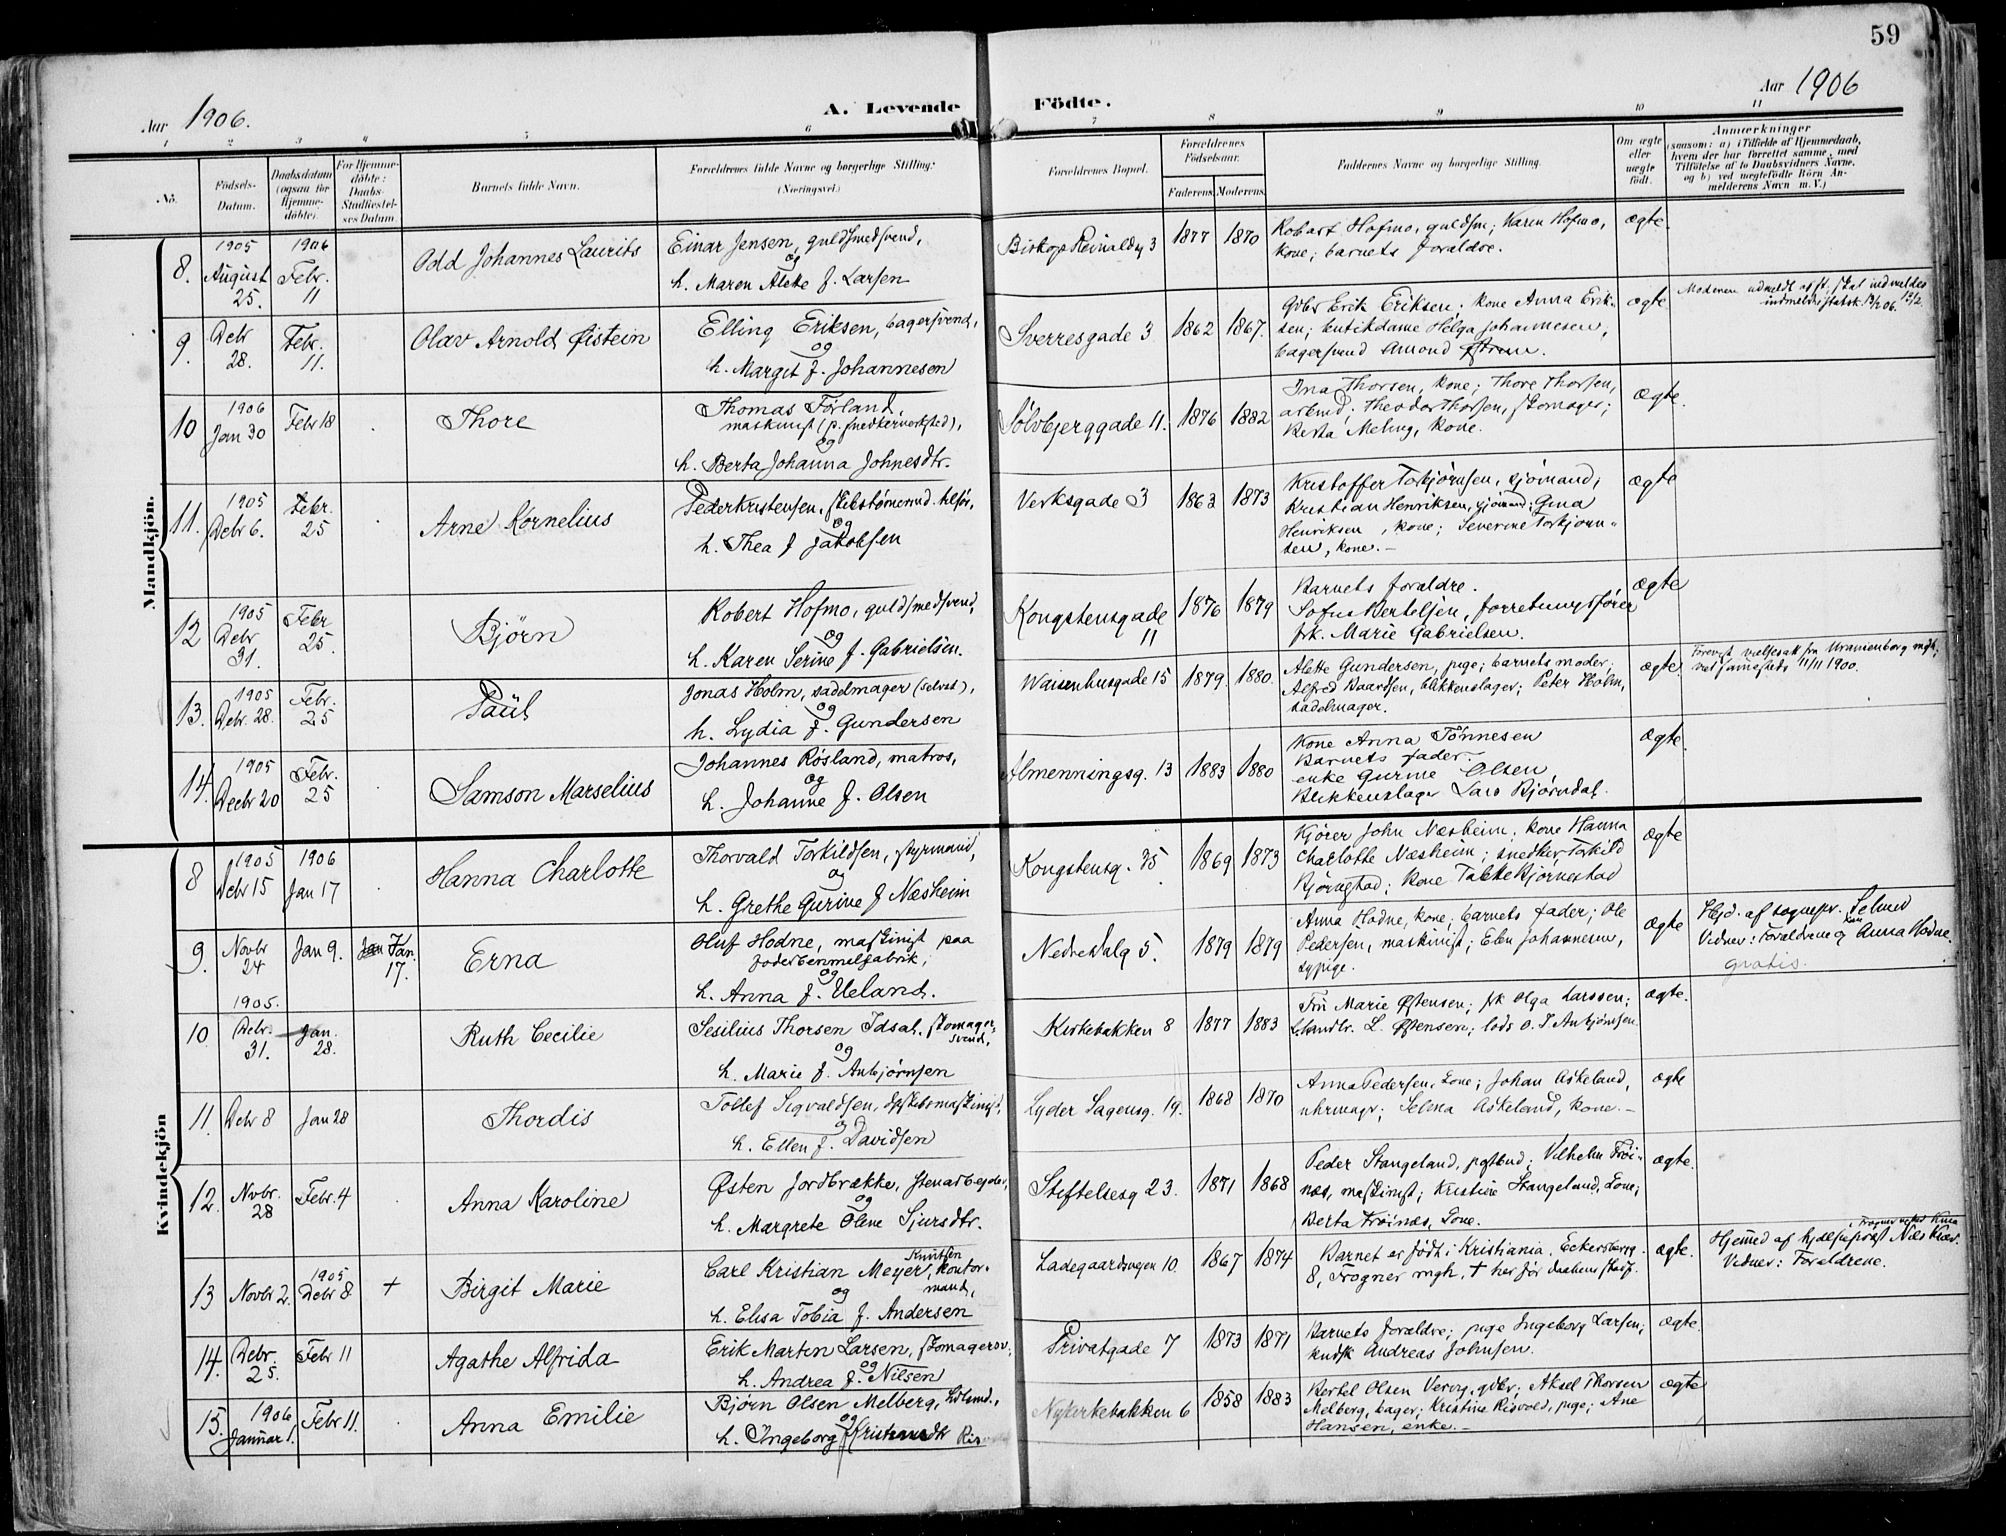 59
Aar 1906.
A. Levende
Födte.
Aar 1906
1 2 3 4 5 6 7 8 9 10 11
No.
Födsels-
Datum.
Daabsdatum
(ogsaa for
Hjemme-
döbte).
For Hjemme-
döbte:
Daabs-
Stadfæstel-
ses Datum
Barnets fulde Navn.
Forældrenes fulde Navne og borgerlige Stilling:
(Næringsvei.)
Forældrenes Bopæl.
Forældrenes
Födselsaar.
Faderens. Moderens.
Faddernes Navne og borgelige Stilling.
Om ægte
eller
uægte
født.
Anmærkninger
(saasom: a) i Tilfælde af Hjemmedaab,
hvem der har forrettet samme, med
Tilföielse af to Daabsvidners Navne,
og b) ved uægtefödte Börn An-
melderens Navn m. V.)
Mandkjön.
8.
1905
August
25.
1906
Febr.
11
Odd Johannes Laurits
Einar Jensen, guldsmedsvend,
og
h. Maren Alette f. Larsen
Biskop Reinaldsg 3
1877
1870
Robert Hofmo, guldsm; Karen Hofmo,
kone; barnets foraldre.
ægte.
9.
Debr
28.
Febr.
11.
Olav Arnold Øistein
Elling Eriksen, bagersvend,
og
h. Margit f. Johannesen
Sverresgade 3
1862
1867.
Gdbr Erik Eriksen; kone Anna Erik-
sen; butikdame Helga Johannesen,
bagersvend Amond
ægte
Moderen udmeldt af st.
10
1906
Jan 30
Febr 18
Thore
Thomas Førland,
maskinist (p. snedkerverksted),
og
h. Berta Johanna Johnesdtr.
Sølvbjerggade 11.
1876
1882
Ina Thorsen, kone; Thore Thorsen,
arbmd; Theodor Thorsen, skomager;
Berta Meling, kone.
ægte.
11.
1905
Debr 6.
Febr.
25
Arne Kornelius
Peder Kristensen, skibstømrmd.
og
h. Thea f Jakobsen
Verksgade 3
1863
1873
Kristoffer Torbjørnsen, sjømand;
Kristian Henriksen, sjømand; Gina
Henriksen, kone; Severine Torbjørn-
sen, kone.-
ægte
12
1905
Debr
31.
Febr
25.
Bjørn
Robert Hofmo, guldsmedsvend,
og
h. Karen Serine f. Gabrielsen.
Kongstensgade
11
1876
1879
Barnets foraldre.
Sofus Bertelsen, forretningsfører
frk. Marie Gabrielsen.
ægte
13.
1905
Debr. 28.
Febr.
25
Paul
Jonas Holm, sadelmager (selvst),
og
h. Lydia f. Gundersen
Waisenhusgade 15
1879.
1880.
Alette Gundersen, pige; barnets moder;
Alfred Baardsen, blikkenslager; Peter Holm,
sadelmager.
ægte.
Forevist vielsesatt fra Uranienborg mgh,
viet sammesteds 11/11 1900.
14.
1905
Decbr 20
Febr.
25
Samson Marselius
Johannes Røsland, matros,
og
h. Johanne f. Olsen
Almenningsg. 13
1883
1880
Kone Anna Tönnesen
Barnets fader.
enke Gurine Olsen
Blikkenslager Lars Bjørndal.
ægte.
Kvindekjön
8
1905
Debr 15
1906
Jan 17
Hanna Charlotte
Thorvald Torkildsen, styrmand,
og
h. Grethe Gurine f Næsheim
Kongstensg. 35
1869
1873
Kjører John Næsheim, kone Hanna
Charlotte Næsheim; snedker Torkild
Bjørnestad; kone Tabitte Bjørnestad
ægte
9.
Novbr
24
Jan 9.
Jan
17.
Erna
Oluf Hodne, maskinist paa
foderbenmelfabrik;
og
h. Anna f. Ueland.
Nedre Dalg 5.
1879
1879
Anna Hodne, kone; barnets fader; Ole
Pedersen, maskinist; Elen Johannesen,
sypige.
ægte
Hjd. af sognepr. Selmer
Vidner: Foraldrene og Anna Hodne.
gratis.
10.
1905.
Debr.
31.
Jan.
28.
Ruth Cecilie
Sesilius Thorsen Idsal, skomager-
svend,
og
h. Marie f. Anbjørnsen
Kirkebakken 8
1877
1883
Fru Marie Østensen; frk Olga Larssen;
handlr. L. Østensen; lods O. T Anbjørnsen
ægte.
11.
Debr 8
Jan 28
Thordis
Tollef Sigvaldsen, dpskibsmaskinist,
og
h. Ellen f. Davidsen
Lyder Sagensg. 19.
1868
1870
Anna Pedersen, kone; Johan Askeland,
uhrmagr; Selma Askeland, kone.-
ægte
12.
Novbr.
28
Febr. 4
Anna Karoline
Østen Jordbrække, stenarbejder,
og
h. Margrete Oline Sjursdtr.
Stiftelsesg 23.
1871
1868
Peder Stangeland, postbud; Vilhelm Trøi-
næs, maskinist; Kristine Stangeland, kone;
Berta Trøinæs, kone.
ægte.
13
Novbr 2.
1905
Debr 8
+
Birgit Marie
Carl Kristian Meyer Knutsen, kontor-
mand,
og
h. Elisa Tobia f. Andersen
Ladegaardsveien 10
1867
1874
Barnet er født i Kristiania, Eckersbergg.
8, Frogner mgh. + her før daabens stadf.
ægte.
Hjemmed af hjælpeprest
Vidner: Foraldrene.
14.
Debr.
25.
Febr 11
Agathe Alfrida
Erik Marten Larsen, skomagersv.,
og
h. Andrea f. Nilsen
Privatgade 7
1873
1871
Barnets foraldre; pige Ingeborg Larsen;
kudsk Andreas Johnsen.
ægte.
15.
1906
Januar 1.
Febr 11.
Anna Emilie
Bjørn Olsen Melberg,
og
h. Ingeborg
Nykirkebakken 6
1858
1883
Bertel Olsen gdbr; Aksel Thorsen
Melberg, bager; Kristine Risvold, pige; Ane
Hansen, enke.-
ægte